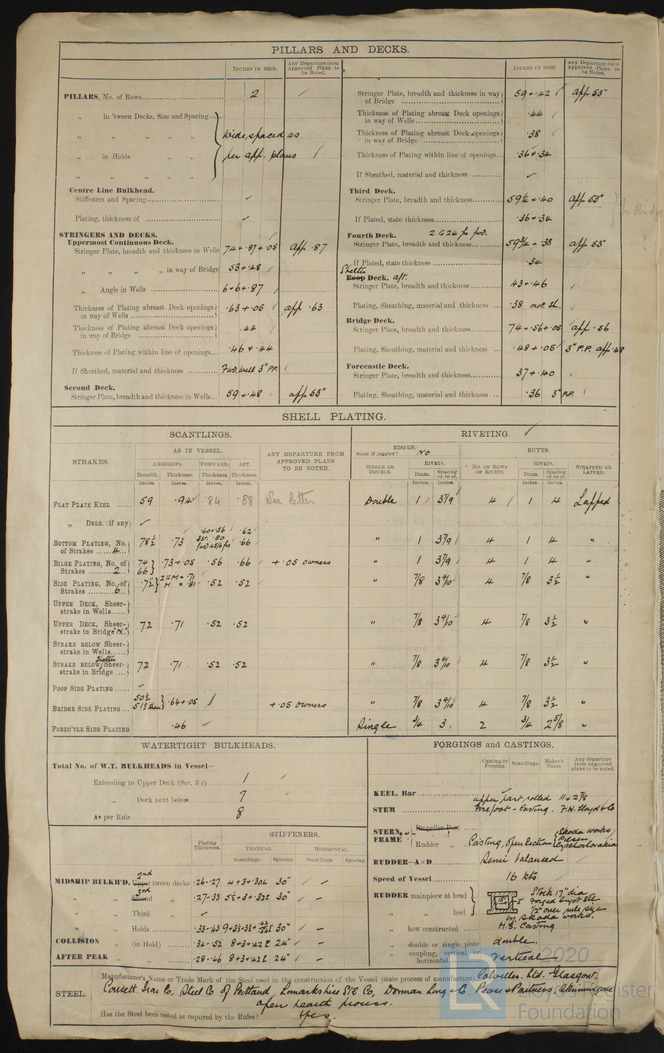 PILLARS AND DECKS.
INCHES IN SHIP. Any Departure from Approved Plans to be Noted.
PILLARS, No. of Rows 2
„ in 'tween Decks, Size and Spacing
„ „ „ „ wide spaced as
„ in Holds „ „ per app. plans
„ „ „ „
Centre Line Bulkhead.
Stiffeners and Spacing
Plating, thickness of
STRINGERS AND DECKS.
Uppermost Continuous Deck.
Stringer Plate, breadth and thickness in Wells 74 + .87 + .05 app .87
„ „ „ „ in way of Bridge 53 + .48
„ Angle in Wells 6 + 6 + .87
Thickness of Plating abreast Deck openings in way of Wells .63 + .05 app .63
Thickness of Plating abreast Deck openings in way of Bridge .44
Thickness of Plating within line of openings .46 + .44
If Sheathed, material and thickness Fwd. well 3" P.P.
Second Deck.
Stringer Plate, breadth and thickness in Wells 59 + .48 app 55"
INCHES IN SHIP. Any Departure from Approved Plans to be Noted.
Stringer Plate, breadth and thickness in way of Bridge 59 + .42 app 55"
Thickness of Plating abreast Deck openings in way of Wells .44
Thickness of Plating abreast Deck openings in way of Bridge .38
Thickness of Plating within line of openings .36 + .34
If Sheathed, material and thickness
Third Deck.
Stringer Plate, breadth and thickness 59½ + .40 app 55"
If Plated, state thickness .36 + .34
Fourth Deck.
Stringer Plate, breadth and thickness 59¾ + .38 app 55
If Plated, state thickness .34
Shelter Poop Deck. aft.
Stringer Plate, breadth and thickness 43 + .46
Plating, Sheathing, material and thickness .38 not sh.
Bridge Deck.
Stringer Plate, breadth and thickness 74 + .56 + .05 app .56
Plating, Sheathing, material and thickness .48 + .05 3" P.P. app .48
Forecastle Deck.
Stringer Plate, breadth and thickness 37 + .40
Plating, Sheathing, material and thickness .36 3" P.P.
SHELL PLATING.
SCANTLINGS. RIVETING.
STRAKES. AS IN VESSEL. ANY DEPARTURE FROM APPROVED PLANS TO BE NOTED.
AMIDSHIPS. FORWARD. AFT.
Breadth. Thickness. Thickness. Thickness.
Inches. Inches. Inches. Inches.
EDGES. State if joggled? No BUTTS.
SINGLE OR DOUBLE. RIVETS. Diam. Spacing cr. to cr. No. OF ROWS OF RIVETS. RIVETS. Diam. Spacing cr. to cr. STRAPPED OR LAPPED.
FLAT PLATE KEEL 59 .94 .84 .88 See letter Double 1 3⅞ 4 1 4 Lapped
„ DBLG. (if any)
BOTTOM PLATING, No. of Strakes 4 78½ .73 .66 „ 1 3⅞ 4 1 4 „
BILGE PLATING, No. of Strakes 2 74 66 .73 + .05 .56 .66 + .05 owners „ 1 3⅞ 4 1 4 „
SIDE PLATING, No. of Strakes 6 72 .71 .52 .52 „ ⅞ 4 ⅞ 3½ „
UPPER DECK, Sheerstrake in Wells
UPPER DECK, Sheerstrake in Bridge 72 .71 .52 .52 „ ⅞ 4 ⅞ 3½ „
STRAKE BELOW Sheerstrake in Wells
STRAKE BELOW Shelter Sheerstrake in Bridge 72 .71 .52 .52 „ ⅞ 4 ⅞ 3½ „
POOP SIDE PLATING
BRIDGE SIDE PLATING 50½ .64 + .05 + .05 owners „ ⅞ 4 ⅞ 3½ „
FOREC'TLE SIDE PLATING .46 Single ¾ 3 2 ¾ 2⅝ „
WATERTIGHT BULKHEADS.
Total No. of W.T. BULKHEADS in Vessel—
Extending to Upper Deck (Sec. 3 c) 1
„ Deck next below 7
As per Rule 8
STIFFENERS.
Plating Thickness. VERTICAL. HORIZONTAL.
Scantlings. Spacing. Scantlings. Spacing.
MIDSHIP BULKH'D, 2nd Upper tween decks .26-.27 4 + 3 + .30L 30" – –
„ 3rd Second „ .27-.33 30" – –
„ Third „
„ Holds .33-.43 30" – –
COLLISION „ (in Hold) .34-.52 8 + 3 + .42L 24" – –
AFTER PEAK „ .28-.46 8 + 3 + .42L 24" – –
FORGINGS and CASTINGS.
Casting or Forging. Scantlings. Maker's Name. Any departure from approved plans to be noted.
KEEL, Bar
STEM upper part rolled 11 + 2⅞ Forefoot - Casting. F.H. Lloyd & Co
STERN FRAME Propeller Post Rudder „ Casting, Open Section Skoda works Pilsen Czechoslovakia
RUDDER—A×D Semi balanced
Speed of Vessel 16 kts
RUDDER mainpiece at head Stock 17" dia
„ „ heel by Skoda works
„ how constructed M.S. Casting
„ double or single plate double.
„ coupling, vertical or horizontal vertical
STEEL. Manufacturer's Name or Trade Mark of the Steel used in the construction of the Vessel (state process of manufacture) Colvilles Ltd. Glasgow.
Consett Iron Co, Steel Co of Scotland, Lanarkshire Stl Co, Dorman Long & Co. Pease & Partners, Skinningrove
open hearth process.
Has the Steel been tested as required by the Rules? Yes.
2020
LR
Lloyd's Register
Foundation